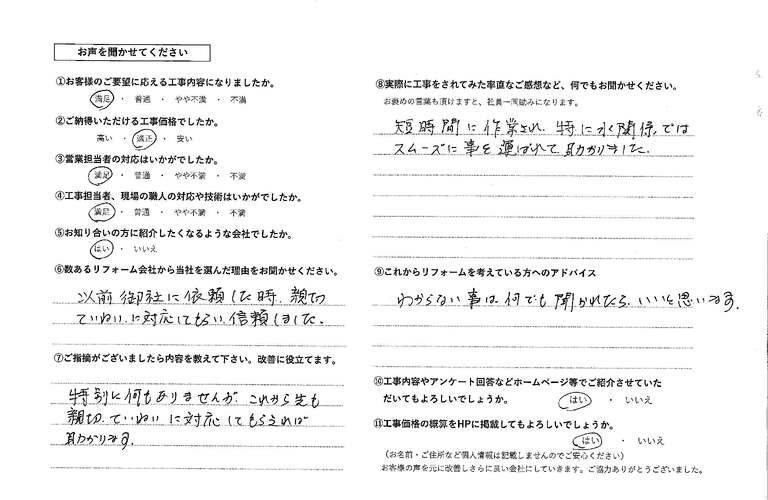 お声を聞かせてください
①お客様のご要望に応える工事内容になりましたか。
満足 ・ 普通 ・ やや不満 ・ 不満
②ご納得いただける工事価格でしたか。
高い ・ 適正 ・ 安い
③営業担当者の対応はいかがでしたか。
満足 ・ 普通 ・ やや不満 ・ 不満
④工事担当者、現場の職人の対応や技術はいかがでしたか。
満足 ・ 普通 ・ やや不満 ・ 不満
⑤お知り合いの方に紹介したくなるような会社でしたか。
はい ・ いいえ
⑥数あるリフォーム会社から当社を選んだ理由をお聞かせください。
以前御社に依頼した時、親切
ていねいに対応してもらい信頼しました。
⑦ご指摘がございましたら内容を教えて下さい。改善に役立てます。
特別に何もありませんが、これから先も
親切、ていねいに対応してもらえれば
助かります。
⑧実際に工事をされてみた率直なご感想など、何でもお聞かせください。
お褒めの言葉も頂けますと、社員一同励みになります。
短時間に作業され、特に水関係では
スムーズに事を運ばれて助かりました。
⑨これからリフォームを考えている方へのアドバイス
わからない事は何でも聞かれたら、いいと思います。
⑩工事内容やアンケート回答などホームページ等でご紹介させていた
だいてもよろしいでしょうか。 はい ・ いいえ
⑪工事価格の概算をHPに掲載してもよろしいでしょうか。
はい ・ いいえ
(お名前・ご住所など個人情報は記載しませんのでご安心ください)
お客様の声を元に改善しさらに良い会社にしていきます。ご協力ありがとうございました。